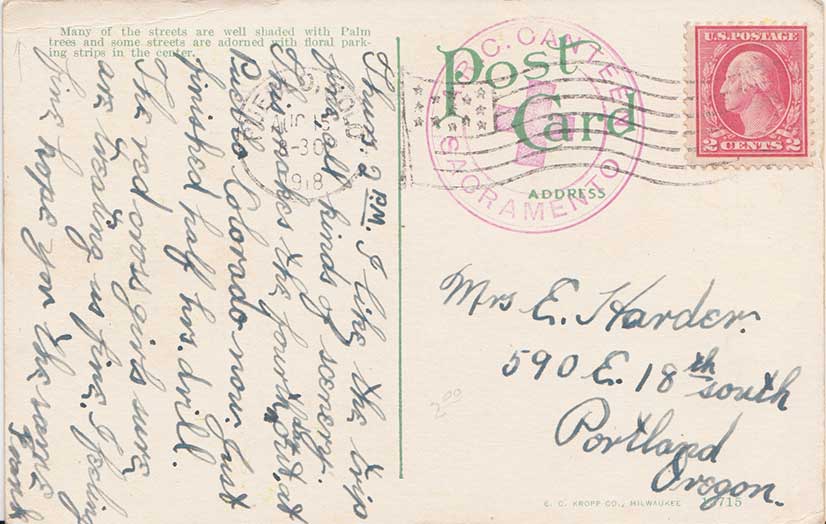 Many of the streets are well shaded with Palm
trees and some streets are adorned with floral park-
ing strips in the center.
Thurs. 2 PM. I like the trip
fine, all kinds of scenery.
This makes the fourth at
Pueblo Colorado now. Just
finished half hrs. drill.
The red cross girls sure
are treating us fine. I feeling
fine hope you the same
Frank
PUEBLO, COLO.
AUG
30
1918
Post
Card
R. C. CANTEEN
SACRAMENTO
U.S. POSTAGE
2 CENTS 2
ADDRESS
Mrs E. Harder.
590 E. 18th south
Portland
Oregon.
2.00
E. C. KROPP CO., MILWAUKEE